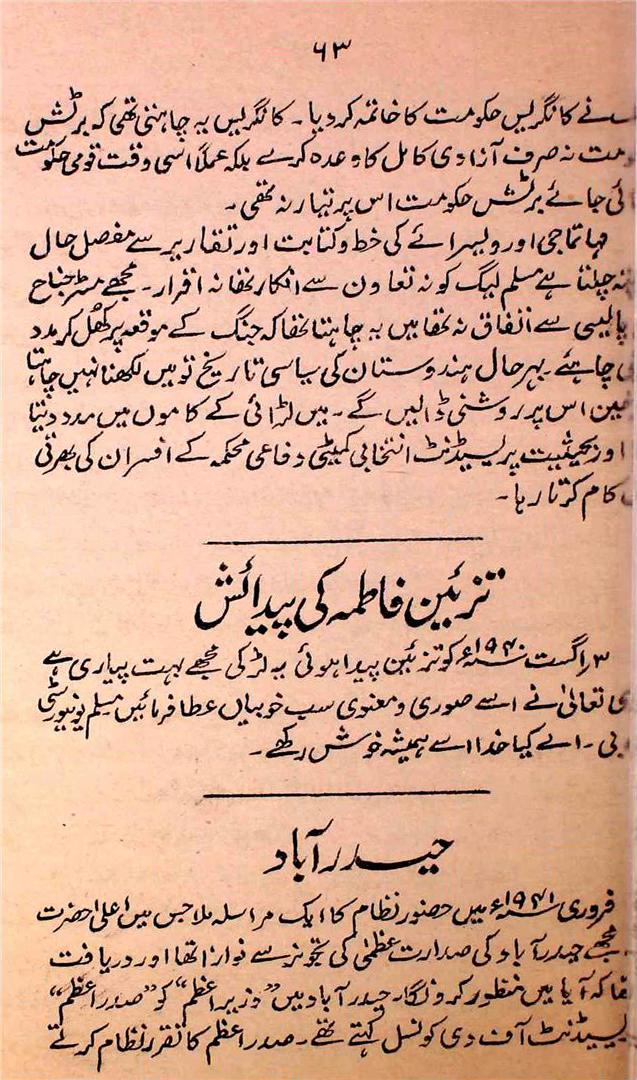 ۶۳
نے کانگریس حکومت کا خاتمہ کر دیا۔ کانگریس یہ چاہتی تھی کہ برٹش
مت نہ صرف آزادی کامل کا وعدہ کرے بلکہ عملاً اسی وقت قومی حکومت
ئی جائے برٹش حکومت اس پر تیار نہ تھی۔
مہاتما جی اور ویسرائے کی خط و کتابت اور تقاریر سے مفصل حال
چلتا ہے مسلم لیگ کو نہ تعاون سے انکار تھا نہ اقرار۔ مجھے مسٹر جناح
پالیسی سے اتفاق نہ تھا میں یہ چاہتا تھا کہ جنگ کے موقعہ پر کھل کر مدد
چاہئے۔ بہر حال ہندوستان کی سیاسی تاریخ تو میں لکھنا نہیں چاہتا
ین اس پر روشنی ڈالیں گے۔ میں لڑائی کے کاموں میں مدد دیتا
اور بحیثیت پریسیڈنٹ انتخابی کمیٹی دفاعی محکمہ کے افسران کی بھرتی
کام کرتا رہا۔
تزئین فاطمہ کی پیدائش
۳ اگست ۱۹۴۰ء کو تزئین پیدا ہوئی یہ لڑکی مجھے بہت پیاری ہے
ی تعالیٰ نے اسے صوری و معنوی سب خوبیاں عطا فرمائیں مسلم یونیورسٹی
بی۔ اے کیا خدا اسے ہمیشہ خوش رکھے۔
حیدر آباد
فروری ۱۹۴۱ء میں حضور نظام کا ایک مراسلہ ملا جس میں اعلیٰ حضرت
مجھے حیدر آباد کی صدارت عظمیٰ کی تجویز سے نوازا تھا اور دریافت
تھا کہ آیا میں منظور کرونگا۔ حیدر آباد میں "وزیر اعظم" کو "صدر اعظم"
یسیڈنٹ آف دی کونسل کہتے تھے۔ صدر اعظم کا تقرر نظام کرتے